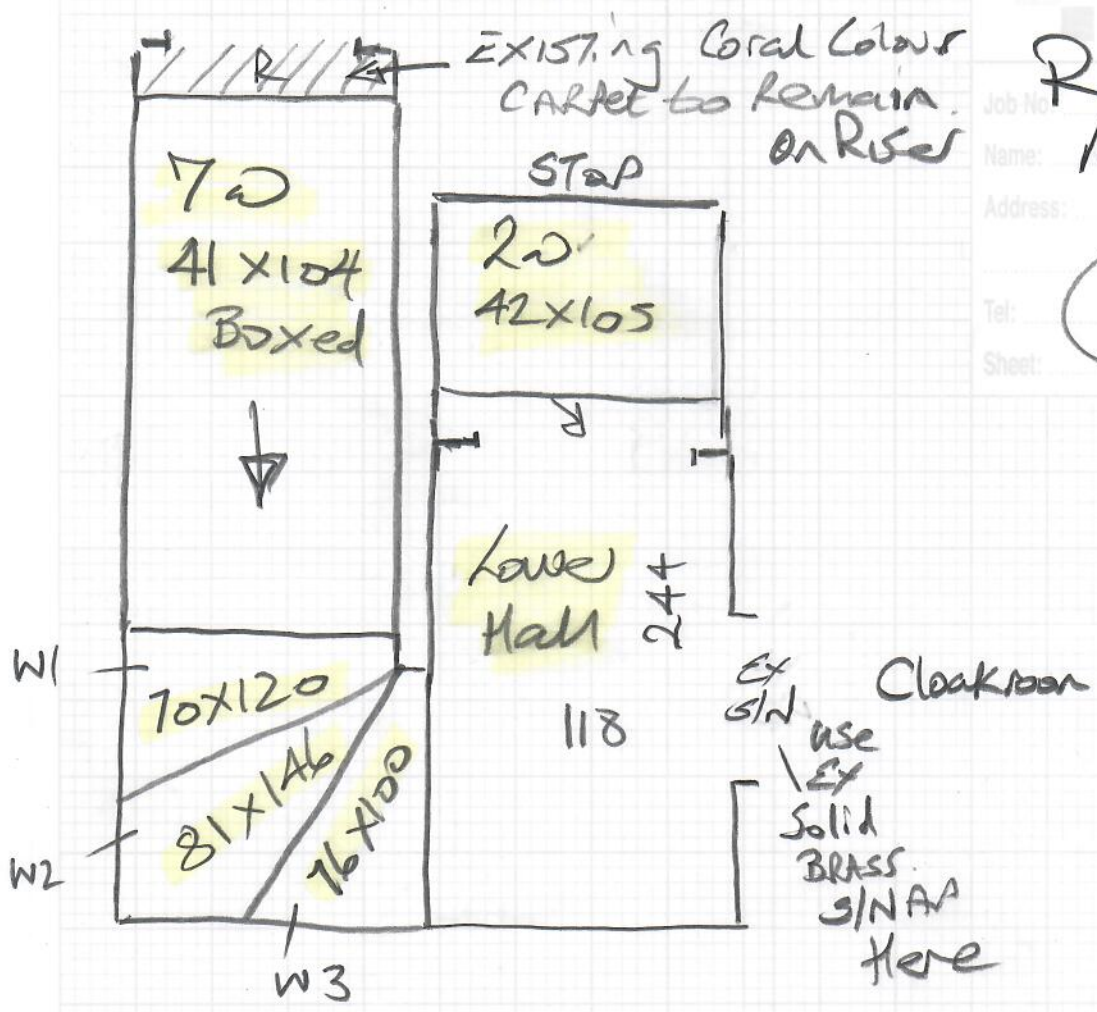 R
EXISTing Coral Colour
CARPet to Remain
on Riser
R
Job No:
Name:
Address:
Tel:
Sheet:
STOP
7W
41 X 104
Boxed
2W
42X105
Lower
Hall
244
118
W1
70X120
W2
81X146
76X100
W3
Ex
S/N
Cloakroom
use
Ex
Solid
BRASS
S/NAP
Here